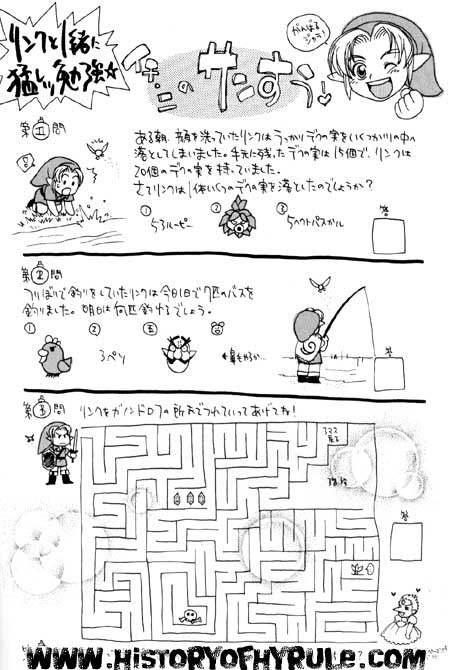 リンクと一緒に
猛しい勉強☆
イチ・ニの サンすう♪
がんばる
ジャラ!
第 問
ある朝、顔を洗っていたリンクはうっかりデクの実をいくつか川の中へ
落としてしまいました。手元に残ったデクの実は15個で、リンクは
20個のデクの実を持っていました。
さてリンクは1体いくつのデクの実を落としたのでしょうか?
① ② ③
5ろルーピー
5ヘクトパスカル
答
第 問
つりぼりで釣りをしていたリンクは今日1日で7匹のバスを
釣りました。明日は何匹釣れるでしょう。
① ②
3ペソ
答
第 問
リンクをガノンドロフの所までつれていってあげてね!
答
WWW.HISTORYOFHYRULE.COM